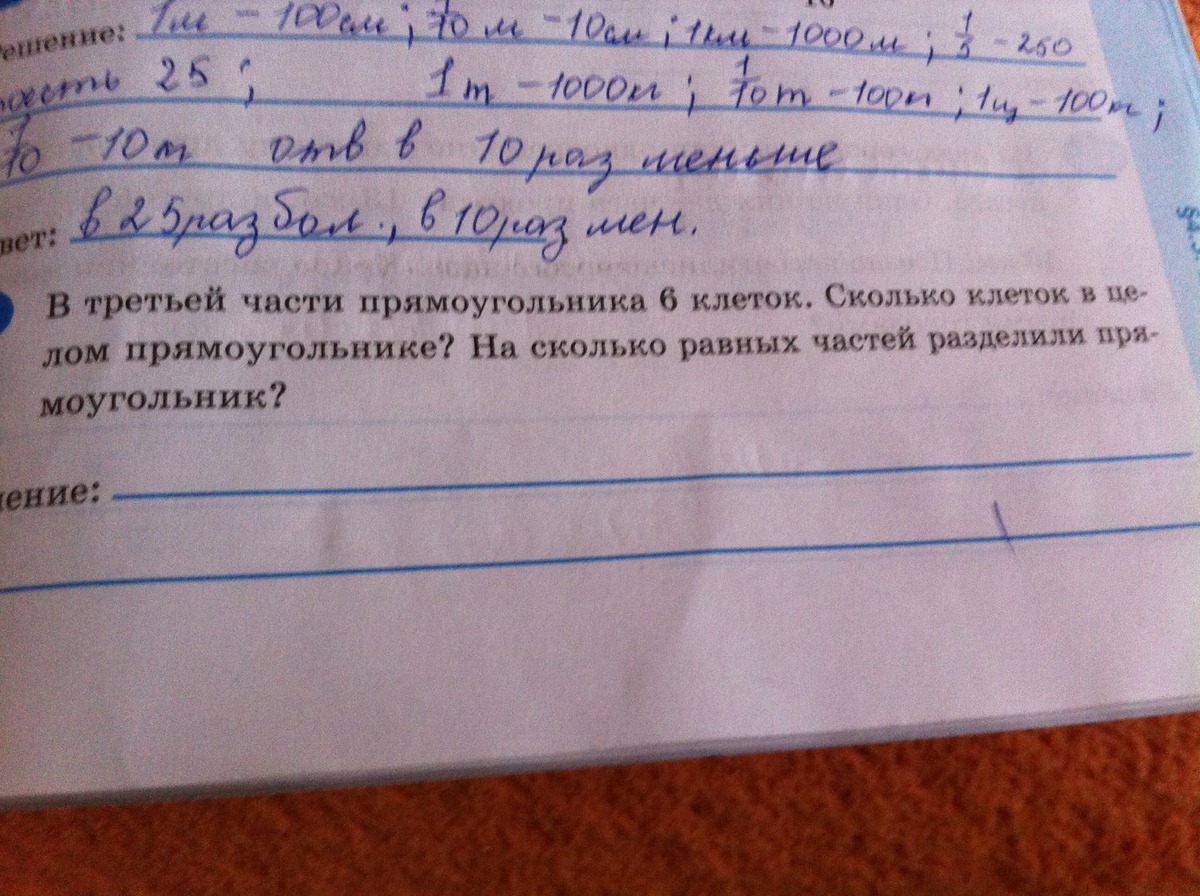 ешение: 1м – 100см; 1/10 м – 10см; 1км – 1000м; 1/5 – 250
25; 1т – 1000п; 1/10 т – 100п; 1ц – 100т;
1/10 – 10т отв в 10 раз меньше
вет: в 25 раз бол., в 10 раз мен.
В третьей части прямоугольника 6 клеток. Сколько клеток в це-
лом прямоугольнике? На сколько равных частей разделили пря-
моугольник?
ение: